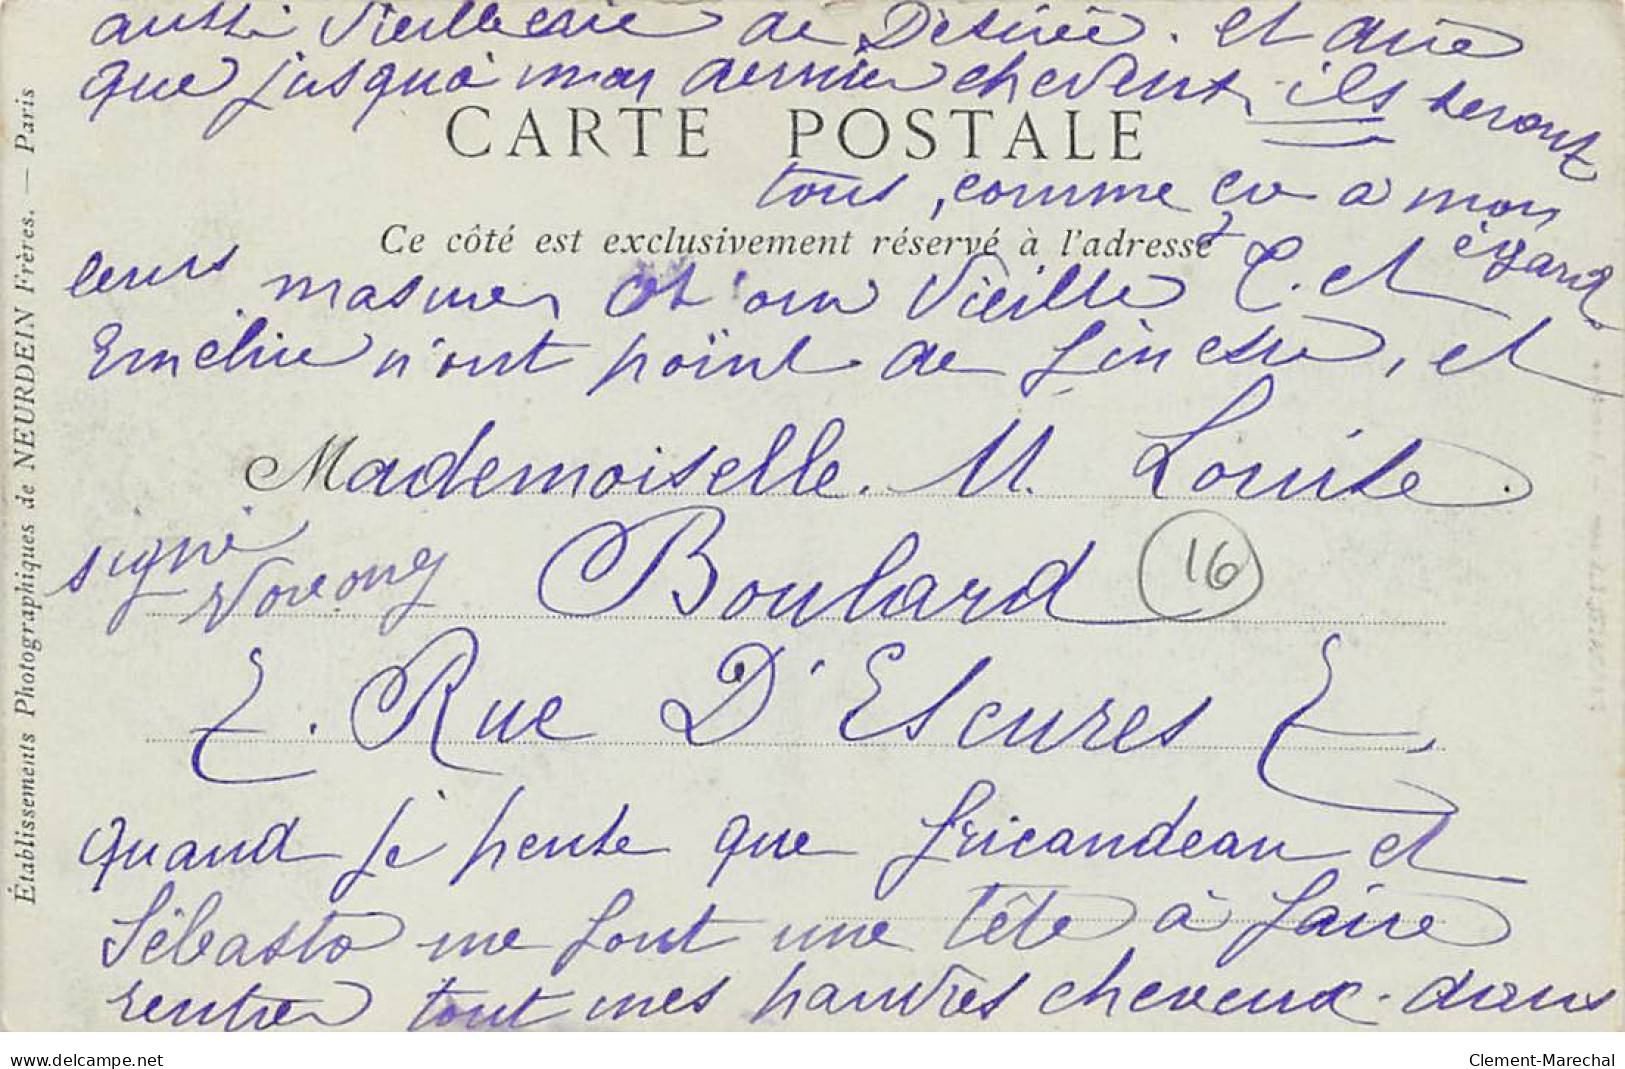 aussi Vieille de Désirée. et dire
que jusqu'à mon dernier cheveux, ils seront
CARTE POSTALE
tous, comme ça à mon
Ce côté est exclusivement réservé à l'adresse
égard
leurs et Vieille C. et
Emélie n'ont point de finesse, et
Mademoiselle. M. Louise
signé
Boulard
16
E. Rue D'Escures E.
quand je pense que fricandeau et
Sébasto me font une tête à faire
rentrer tout mes pauvres cheveux. dans
Établissements Photographiques de NEURDEIN Frères. — Paris
delcampe.net
Clement-Marechal